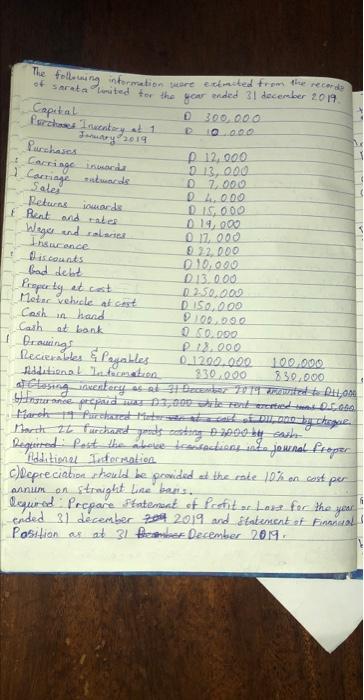 The following information were extracted from the records
of sarata limited for the year ended 31 december 2019.
Capital D 300,000
Purchases Inventory at 1 January 2019 D 10,000
Purchases D 12,000
Carriage inwards D 13,000
Carriage outwards D 7,000
Sales D 4,000
Returns inwards D 15,000
Rent and rates D 19,000
Wages and salaries D 17,000
Insurance D 22,000
Discounts D 10,000
Bad debt D 13.000
Property at cost D 250,000
Motor vehicle at cost D 150,000
Cash in hand D 100,000
Cash at bank D 50,000
Drawings D 18,000
Recievables & Payables D 1200,000 100,000
Additional Information 830,000 830,000
a) Closing inventory as at 31 December 2019 amounted to D11,000
b) Insurance prepaid was D3,000 while rent accrued was D5,000
March 19 Purchased Motor van at a cost of D11,000 by cheque
March 26 Purchased goods costing D2000 by cash
Required: Post the above transactions into journal Proper
Additional Information
c) Depreciation should be provided at the rate 10% on cost per
annum on straight line basis.
Required: Prepare Statement of Profit or Loss for the year
ended 31 december 2019 and Statement of Financial
Position as at 31 December 2019.